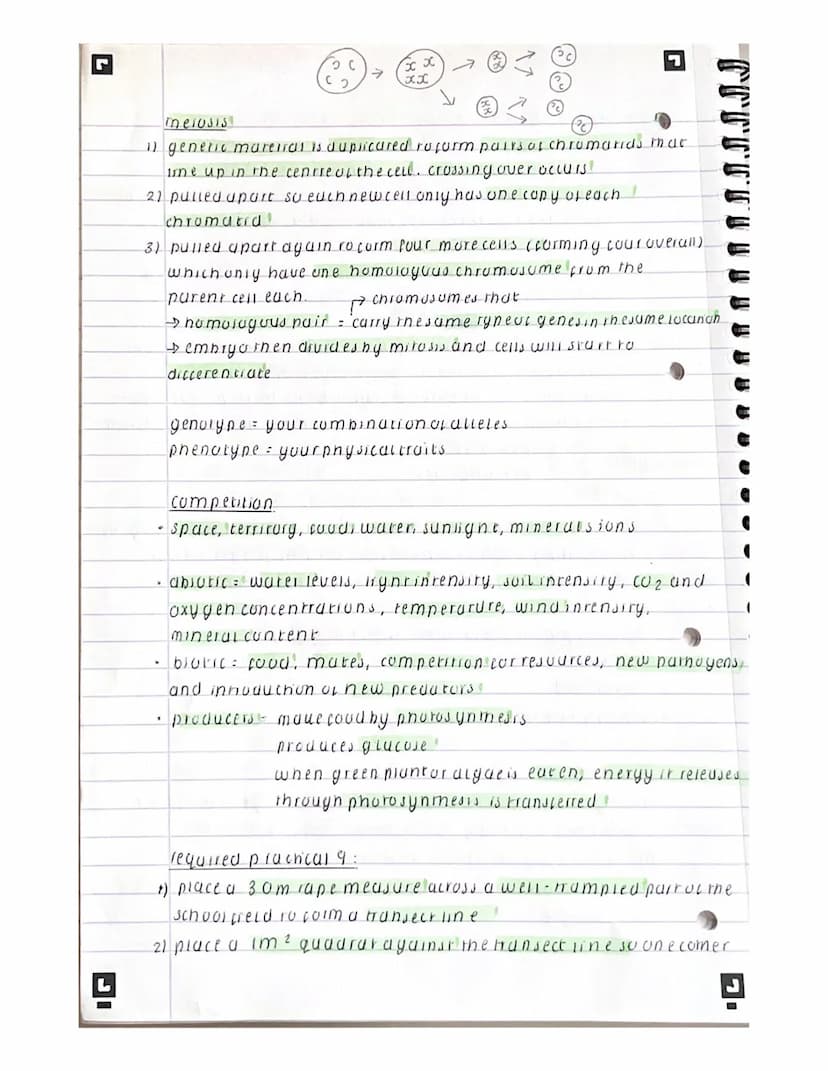 meiosis
1) genetic material is duplicated to form pairs of chromatids that
line up in the centre of the cell. crossing over occurs
2) pulled apart so each new cell only has one copy of each
chromatid
3) pulled apart again to form four more cells (forming four overall)
which only have one homologous chromosome from the
parent cell each.
chromosomes that
→ homologous pair = carry the same type of genes in the same location
→ embryo then divides by mitosis and cells will start to
differentiate
genotype = your combination of alleles
phenotype = your physical traits
competition
• space, territory, food, water, sunlight, minerals ions
• abiotic = water levels, light intensity, soil intensity, CO2 and
oxygen concentrations, temperature, wind intensity,
mineral content
• biotic = food, mates, competition for resources, new pathogens,
and introduction of new predators
• producers - make food by photosynthesis
produces glucose
when green plant or algae is eaten, energy it releases
through photosynthesis is transferred
required practical 9:
1) place a 30m tape measure across a well-trampled part of the
school field to form a transect line
2) place a 1m² quadrat against the transect line so one corner